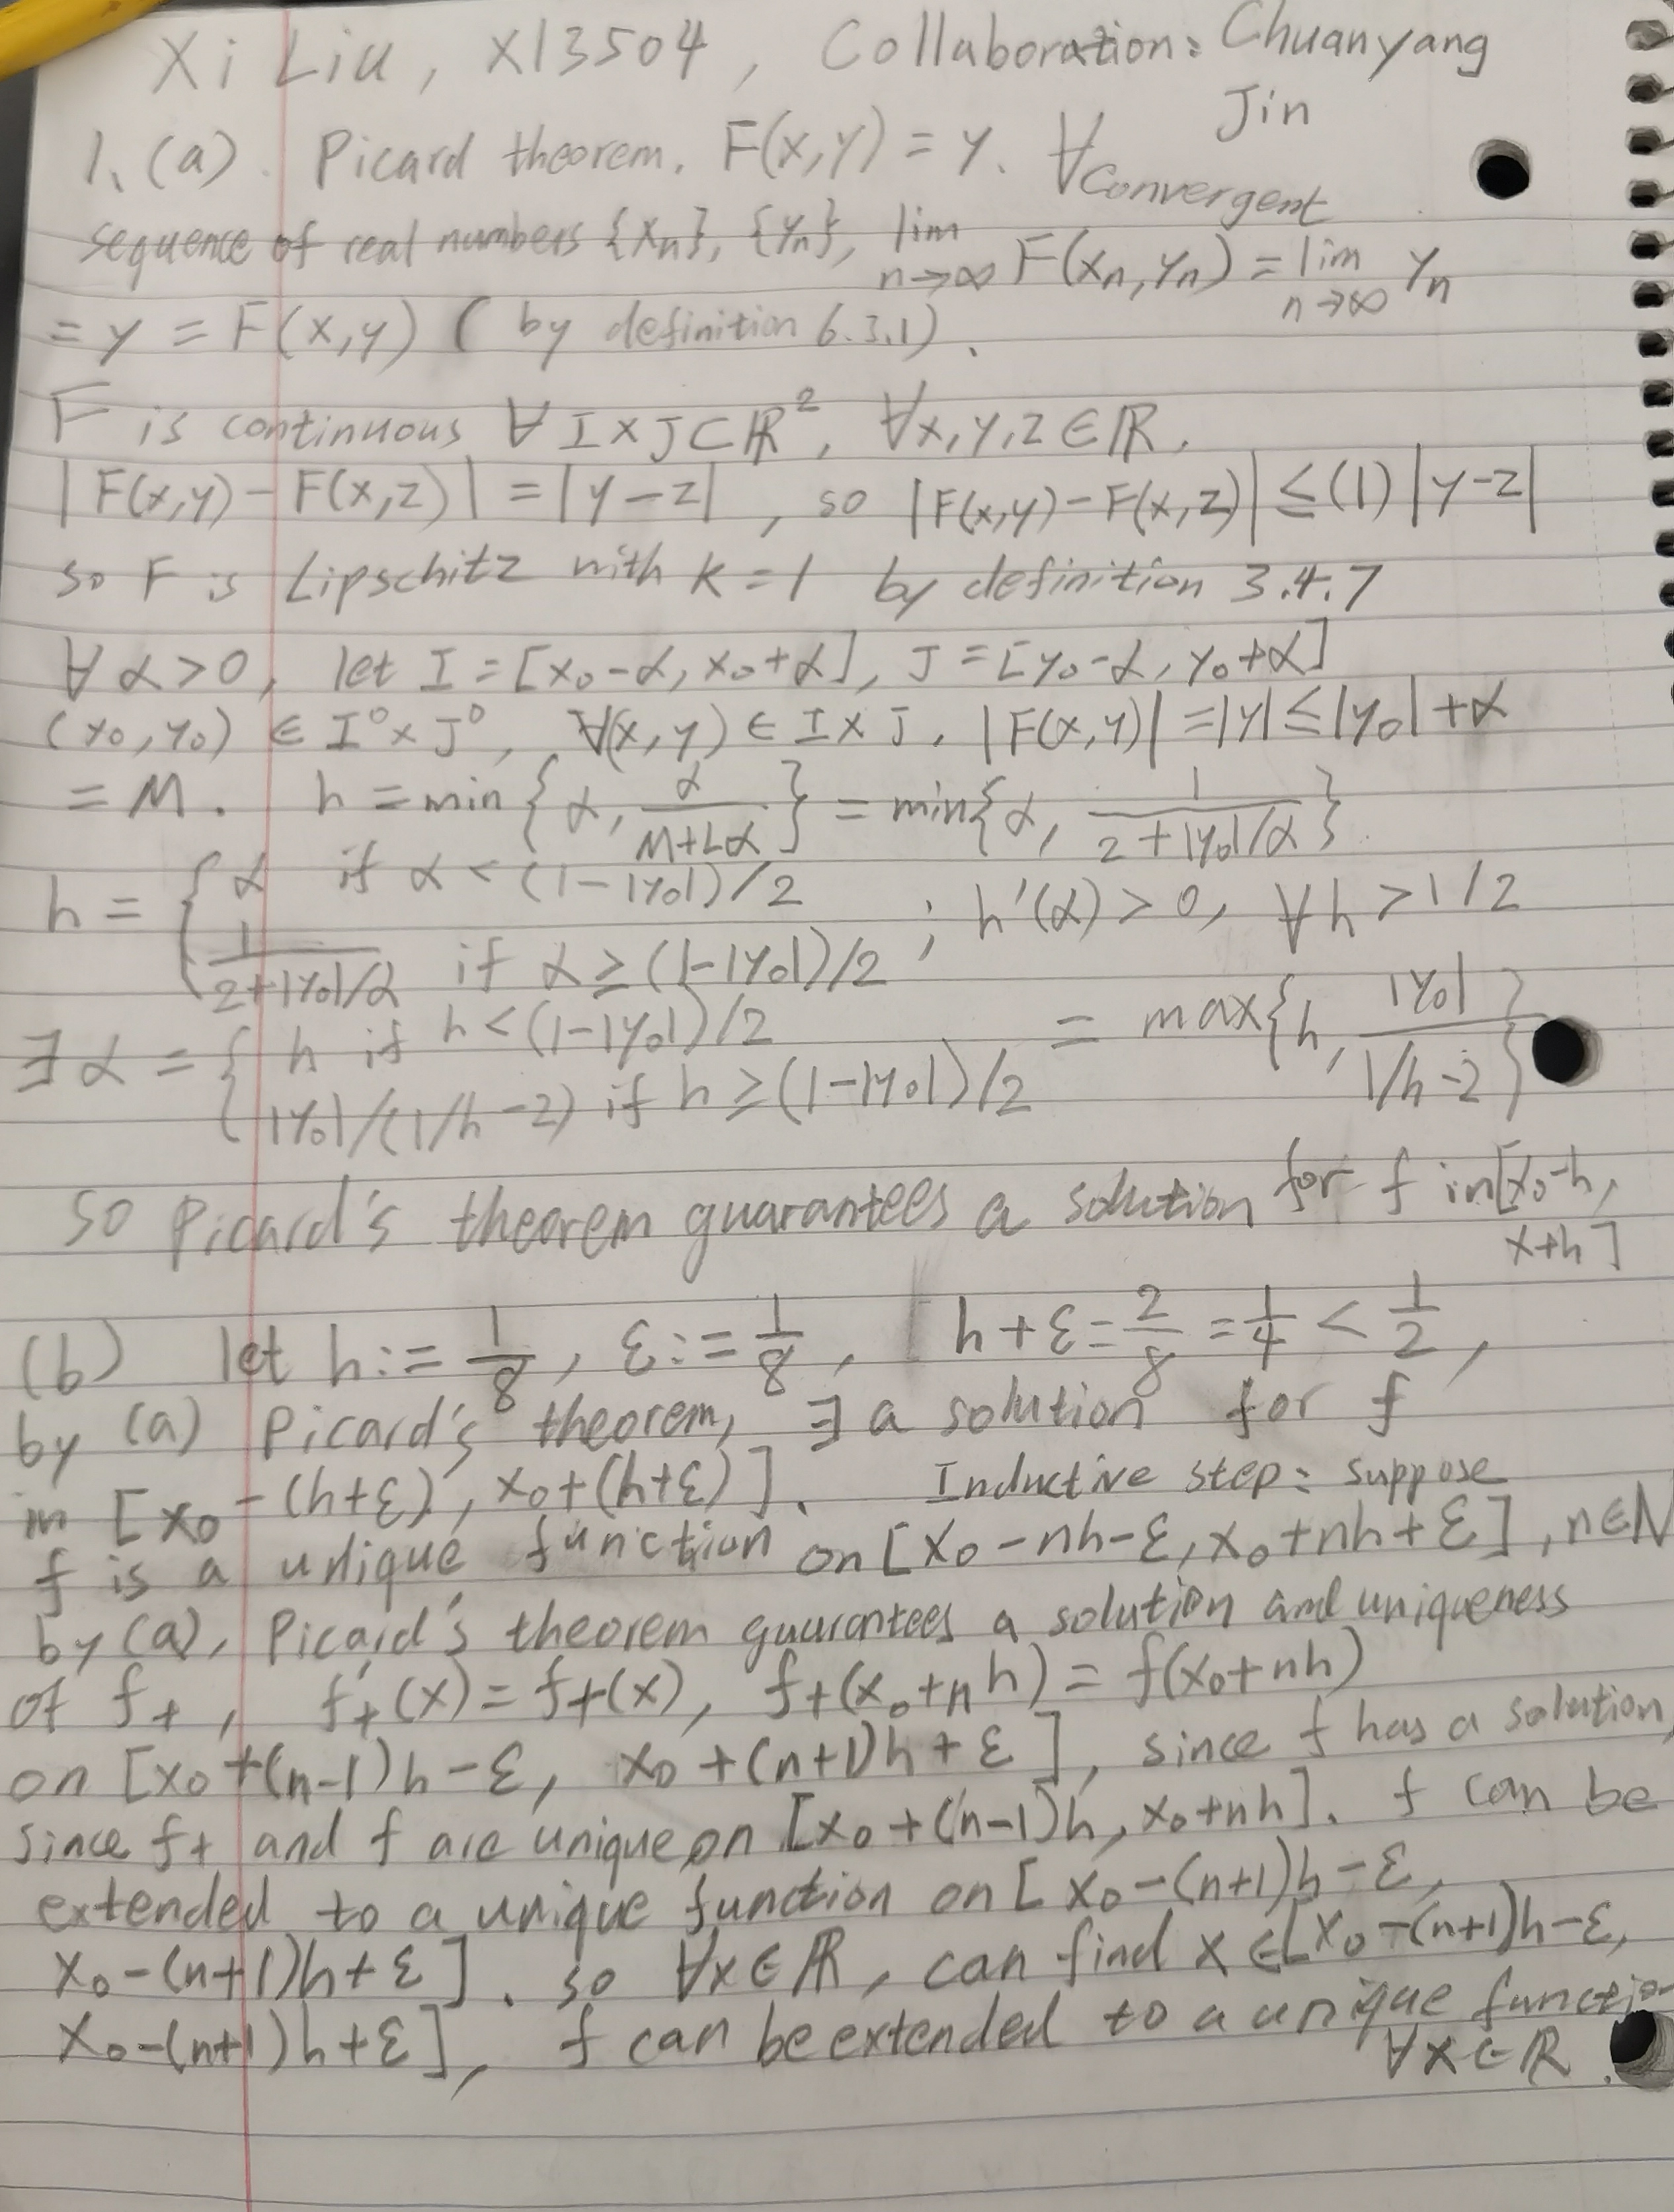 Xi Liu, xl3504, Collaboration: Chuanyang
Jin
1. (a). Picard theorem. F(x,y) = y. ∀ Convergent
sequence of real numbers {xn}, {yn}, lim n→∞ F(xn, yn) = lim n→∞ yn
= y = F(x,y) ( by definition 6.3.1).
F is continuous ∀ I×J⊂ℝ², ∀x,y,z∈ℝ,
|F(x,y) - F(x,z)| = |y-z|, so |F(x,y)-F(x,z)| ≤ (1)|y-z|
so F is Lipschitz with k=1 by definition 3.4.7
∀ α>0, let I = [x₀-α, x₀+α], J = [y₀-α, y₀+α]
(x₀, y₀) ∈ I° × J°, ∀(x,y) ∈ I×J, |F(x,y)| = |y| ≤ |y₀| + α
= M. h = min{α, α/(M+Lα)} = min{α, 1/(2+|y₀|/α)}
h = { α if α < (1-|y₀|)/2 ; h'(α) > 0, ∀ h > 1/2
1/(2+|y₀|/α) if α ≥ (1-|y₀|)/2
∃ α = { h if h < (1-|y₀|)/2 = max{h, |y₀|/(1/h - 2)}
|y₀|/(1/h - 2) if h ≥ (1-|y₀|)/2
so Picard's theorem guarantees a solution for f in [x₀-h,
x+h]
(b) let h := 1/8, ε := 1/8, h+ε = 2/8 = 1/4 < 1/2,
by (a) Picard's theorem, ∃ a solution for f
in [x₀-(h+ε), x₀+(h+ε)]. Inductive step: suppose
f is a unique function on [x₀-nh-ε, x₀+nh+ε], n∈ℕ
by (a), Picard's theorem guarantees a solution and uniqueness
of f₊, f₊'(x) = f₊(x), f₊(x₀+nh) = f(x₀+nh)
on [x₀+(n-1)h-ε, x₀+(n+1)h+ε], since f has a solution,
since f₊ and f are unique on [x₀+(n-1)h, x₀+nh]. f can be
extended to a unique function on [x₀-(n+1)h-ε,
x₀-(n+1)h+ε]. so ∀x∈ℝ, can find x∈[x₀-(n+1)h-ε,
x₀-(n+1)h+ε], f can be extended to a unique function
∀x∈ℝ.